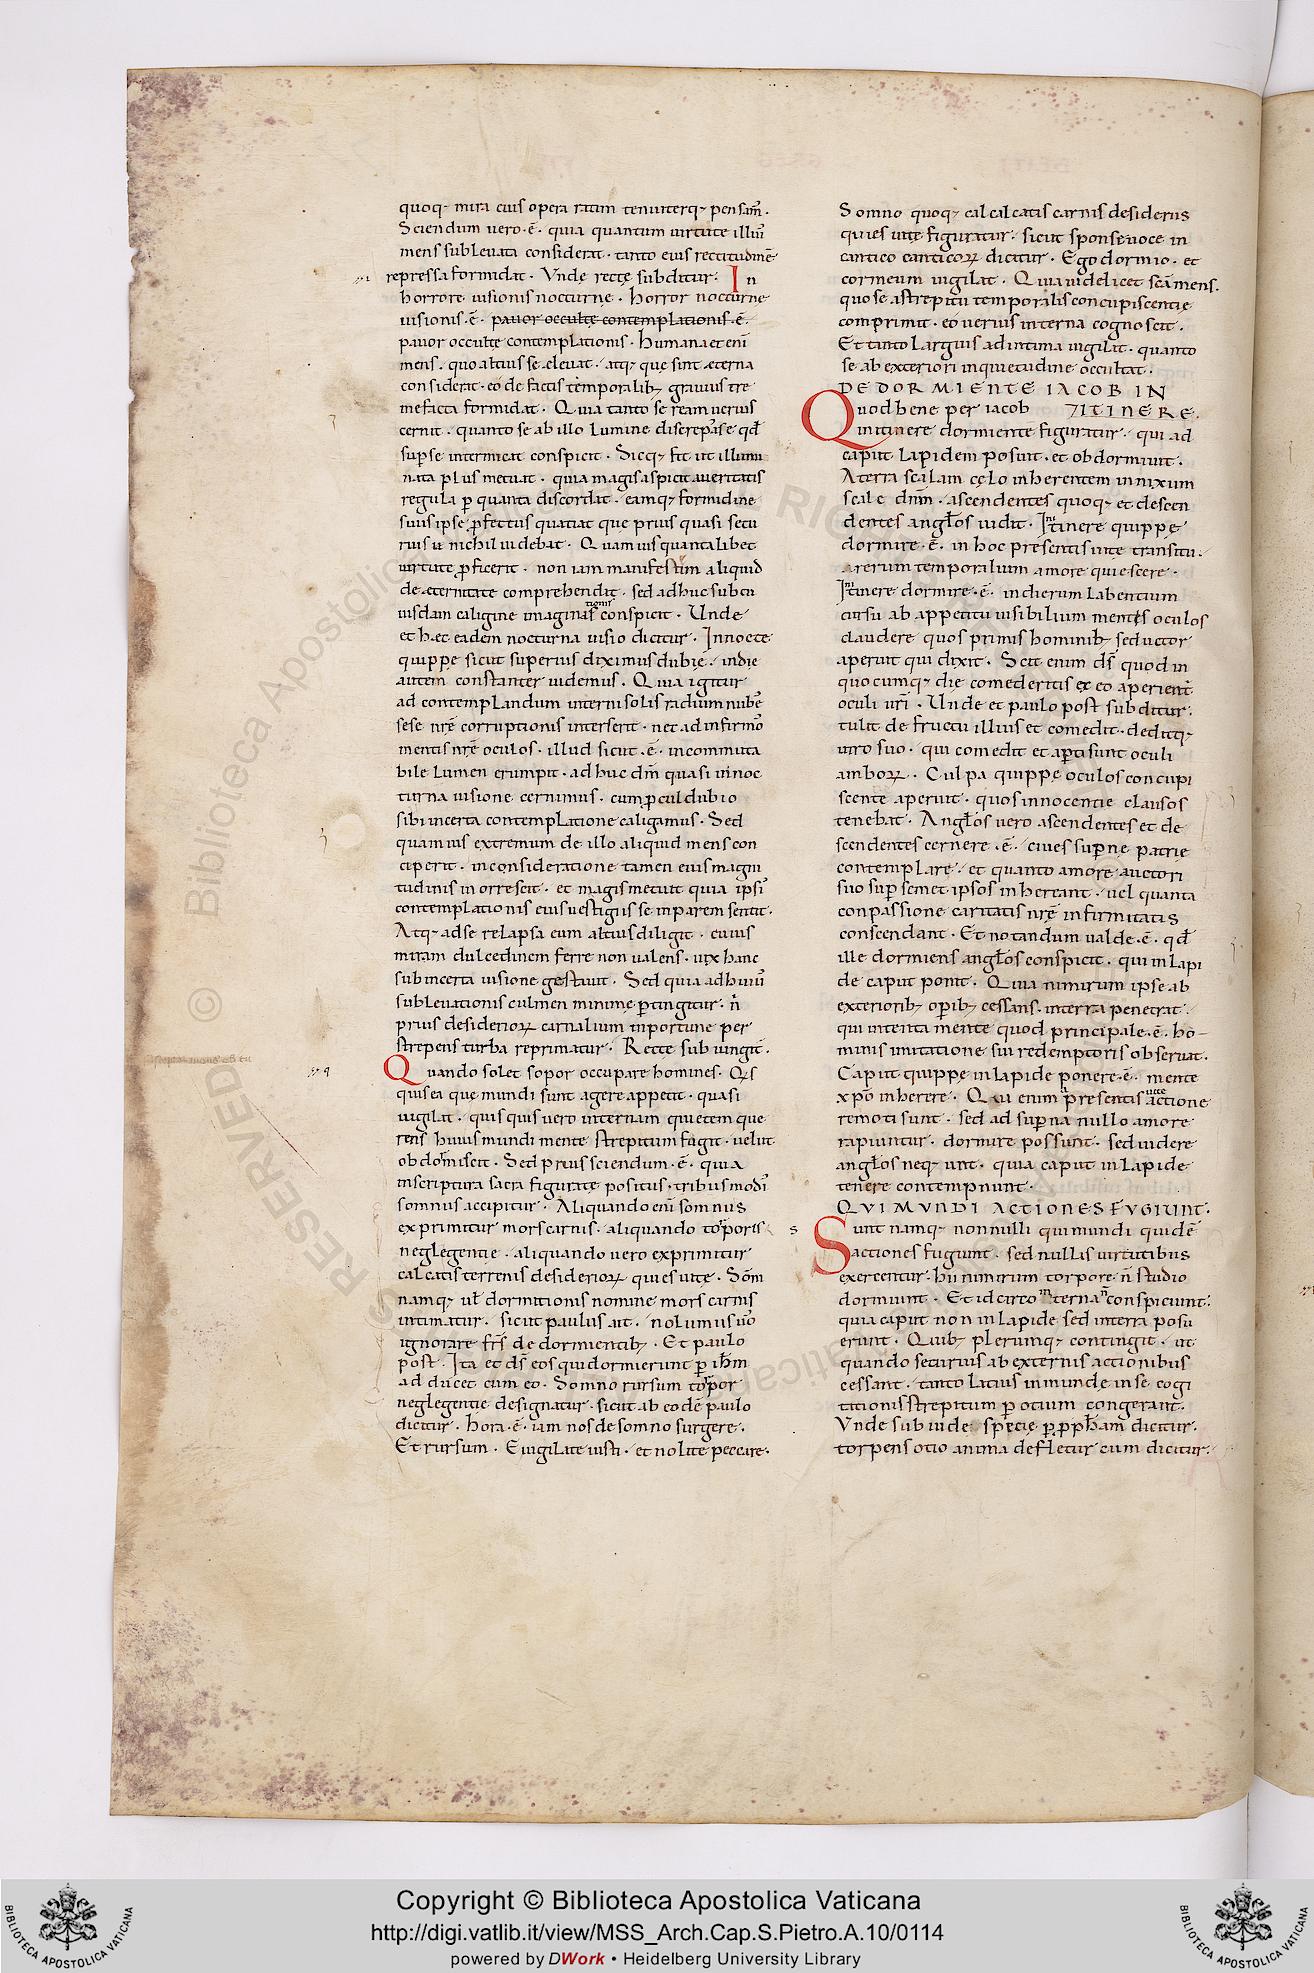 quoq; mira eius opera ratim tenuiterq; pensam̄.
Sciendum vero .ē. quia quantum uirtute illiu᷒
mens subleuata considerat. tanto eius rectitudinē
repressa formidat. Vnde recte subditur. In
horrore uisionis nocturne. horror nocturnę
uisionis .ē. pauor occulte contemplationis .ē.
pauor occultę contemplationis. humana et eni
mens. quo altius se eleuat. atq; que sunt eterna
considerat. eo de factis temporalib; grauius tre
mefacta formidat. Quia tanto se ream uerius
cernit. quanto se ab illo lumine discrepasse qd̄
sup se intermicat conspicit. Sicq; fit ut illumi
nata plus metuat. quia magis aspicit a ueritatis
regula p quanta discordat. eamq; formidine
suus ipse pfectus quatiat que prius quasi secu
rius nichil uidebat. Quam uis quantalibet
uirtute pficerit. non iam manifestim aliquid
de eternitate comprehendat. sed adhuc sub cu
iusdam caligine imaginat conspicit. Unde
et hęc eadem nocturna uisio dicitur. In nocte
quippe sicut superius diximus dubię. in die
autem constanter uidemus. Quia igitur
ad contemplandum interni solis radium nubē
sese nrē corruptionis interserit. nec ad infirmo
mentis nrē oculos. illud sicut .ē. incommuta
bile lumen erumpit. adhuc dm̄ quasi in noc
turna uisione cernimus. cum pcul dubio
sibi incerta contemplatione caligamus. Sed
quam uis extremum de illo aliquid mens con
ciperit. in consideratione tamen eius magni
tudinis inorrescit. et magis metuit quia ipsi᷒
contemplationis eius uestigiis se imparem sentit.
Atq; ad se relapsa eum altius diligit. cuius
miram dulcedinem ferre non ualens. uix hanc
sub incerta uisione gestauit. Sed quia ad huiu᷒
subleuationis culmen minime ptingitur. n̄
prius desideriorꝝ carnalium inportune per
strepens turba reprimatur. Recte sub iungit̄.
Quando solet sopor occupare homines. Qs
quis ea que mundi sunt agere appetit. quasi
uigilat. quis quis vero internam quietem que
rens huius mundi mente strepitum fugit. uelut
obdormiscit. Sed prius sciendum .ē. quia
in scriptura sacra figuratę positus. tribus modi᷒
somnus accipitur. Aliquando eni somnus
exprimitur mors carnis. aliquando torporis
neglegentie. aliquando uero exprimitur
calcatis terrenis desideriorꝝ quies uitę. Som̄
namq; ul̄ dormitionis nomine mors carnis
intimatur. sicut paulus ait. nolumus uo
ignorare frs̄ de dormientib;. Et paulo
post. Ita et ds̄ eos qui dormierunt p ihm̄
adducet cum eo. Somno rursum torpor
neglegentie designatur. sicut ab eodē paulo
dicitur. hora .ē. iam nos de somno surgere.
Et rursum. Euigilate iusti. et nolite peccare.
Somno quoq; cal calcatis carnis desideriis
quies uitę figuratur. sicut sponsę uoce in
cantico canticorꝝ dicitur. Ego dormio. et
cor meum uigilat. Quia uidelicet scā mens.
quo se a strepitu temporalis concupiscentię
comprimit. eo uerius interna cognoscit.
Et tanto largius ad intima uigilat. quanto
se ab exteriori inquietudine occultat.
DE DORMIENTE IACOB IN
ITINERE.
Quod bene per iacob
in itinere dormiente figuratur. qui ad
caput lapidem posuit. et obdormiuit.
A terra scalam cęlo inherentem innixum
scalę dnm̄. ascendentes quoq; et descen
dentes angl̄os uidit. Itinere quippe
dormire .ē. in hoc presentis uitę transitu.
a rerum temporalium amore quiescere.
Itinere dormire .ē. in dierum labentium
cursu ab appetitu uisibilium mentis oculos
claudere quos primis hominib; seductor
aperuit qui dixit. Scit enim ds̄ quod in
quocumq; die comederitis ex eo aperient̄
oculi uri. Unde et paulo post subditur.
tulit de fructu illius et comedit. deditq;
uiro suo. qui comedit et apti sunt oculi
amborꝝ. Culpa quippe oculos concupi
scente aperuit. quos innocentie clausos
tenebat. Angl̄os vero ascendentes et de
scendentes cernere .ē. ciues supne patrie
contemplare. et quanto amore auctori
suo sup semet ipsos inhereant. uel quanta
conpassione caritatis nrē infirmitatis
conscendant. Et notandum ualde .ē. qd̄
ille dormiens angl̄os conspicit. qui in lapi
de caput ponit. Quia nimirum ipse ab
exteriorib; opib; cessans. interra penetrat.
qui intenta mente quod principale .ē. ho-
minis imitatione sui redemptoris obseruat.
Caput quippe in lapide ponere .ē. mente
xpo inherere. Qui enim a presentis uite actione
remoti sunt. sed ad supna nullo amore
rapiuntur. dormire possunt. sed uidere
angl̄os neq; unt. quia caput in lapide
tenere contempnunt.
QUI MUNDI ACTIONES FUGIUNT.
Sunt namq; non nulli qui mundi quidē
actiones fugiunt. sed nullis uirtutibus
exercentur. hii nimirum torpore n̄ studio
dormiunt. Et idcirco interna n̄ conspiciunt.
quia caput non in lapide sed in terra posu
erunt. Quib; plerumq; contingit. ut
quando securius ab externis actionibus
cessant. tanto latius inmunde in se cogi
tationis strepitum p otium congerant.
Vnde sub iude specie p pph̄am dicitur.
torpens otio anima defletur cum dicitur.
Copyright © Biblioteca Apostolica Vaticana
http://digi.vatlib.it/view/MSS_Arch.Cap.S.Pietro.A.10/0114
powered by DWork • Heidelberg University Library